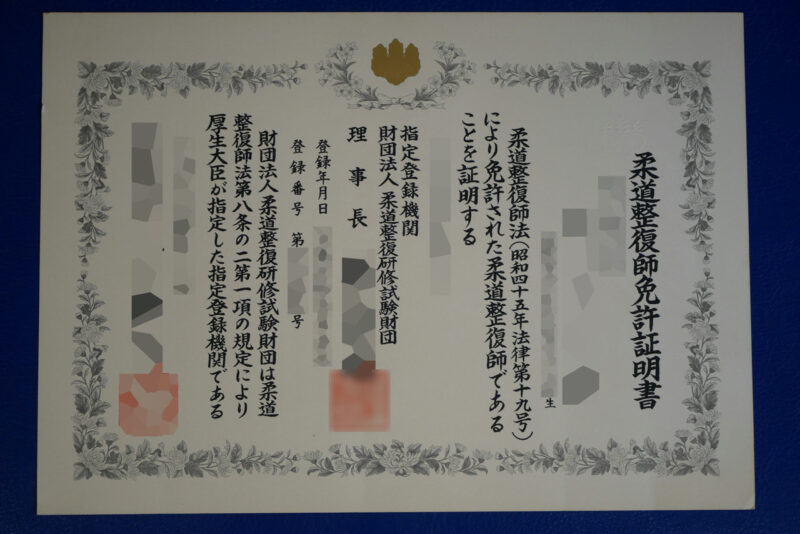 柔道整復師免許証明書
生
柔道整復師法(昭和四十五年法律第十九号)
により免許された柔道整復師である
ことを証明する
指定登録機関
財団法人 柔道整復研修試験財団
理事長
登録年月日
登録番号 第 号
財団法人柔道整復研修試験財団は柔道
整復師法第八条の二第一項の規定により
厚生大臣が指定した指定登録機関である